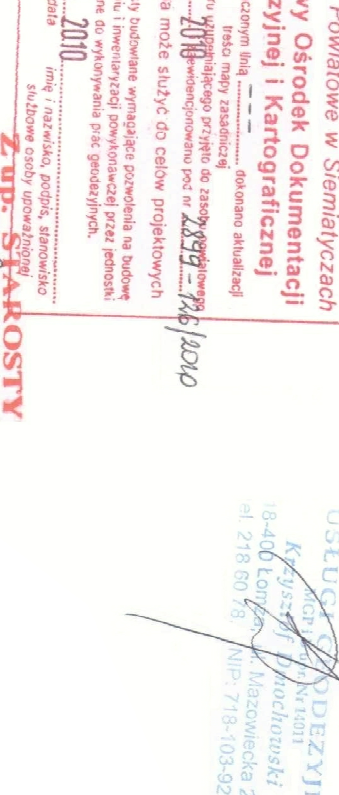 Powiatowe w Siemiatyczach
wy Ośrodek Dokumentacji
zyjnej i Kartograficznej
czonym linią ........ dokonano aktualizacji
treści mapy zasadniczej
ru uzupełniającego przyjęto do zasobu powiatowego
2010 zewidencjonowano pod nr 2899-126/2010
a może służyć do celów projektowych
ty budowlane wymagające pozwolenia na budowę
iu i inwentaryzacji powykonawczej przez jednostki
ne do wykonywania prac geodezyjnych.
2010
data imię i nazwisko, podpis, stanowisko
służbowe osoby upoważnionej
Z up. STAROSTY
USŁUGI GEODEZYJN
Nr 14011
Krzysztof Dmochowski
18-400 Łomża, ul. Mazowiecka 2
el. 218 60 78, NIP: 718-103-92